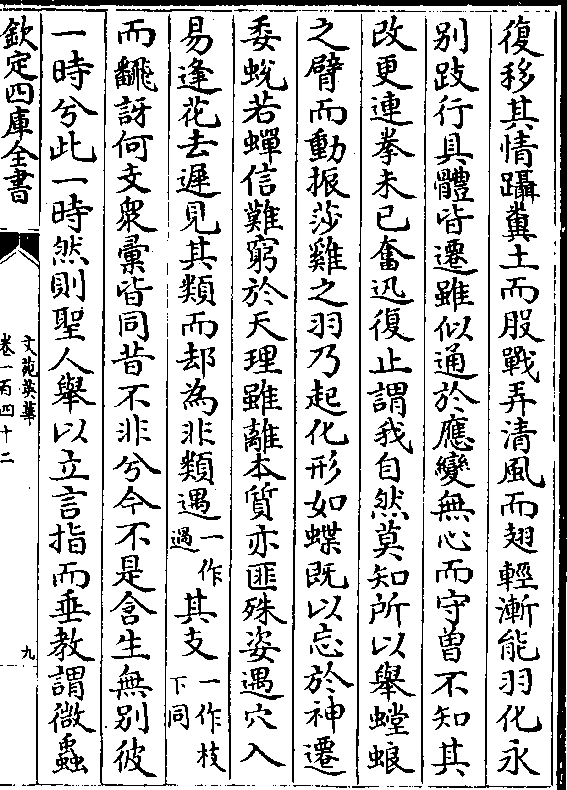 復移其情躡糞土而股戰弄清風而翅輕漸能羽化永
别跂行具體皆遷雖似通於應變無心而守曽不知其
改更連拳未已奮迅復止謂我自然莫知所以舉螳蜋
之臂而動振莎雞之羽乃起化形如蝶既以忘於神遷
委蛻若蟬信難窮於天理雖離本質亦匪殊姿遇穴入
易逢花去遲見其類而却為非類遇一作過其支一作枝下同
而翻訝何支衆彙皆同昔不非兮今不是含生無别彼
一時兮此一時然則聖人舉以立言指而垂教謂微蟲
欽定四庫全書
文苑英華
卷一百四十二
九